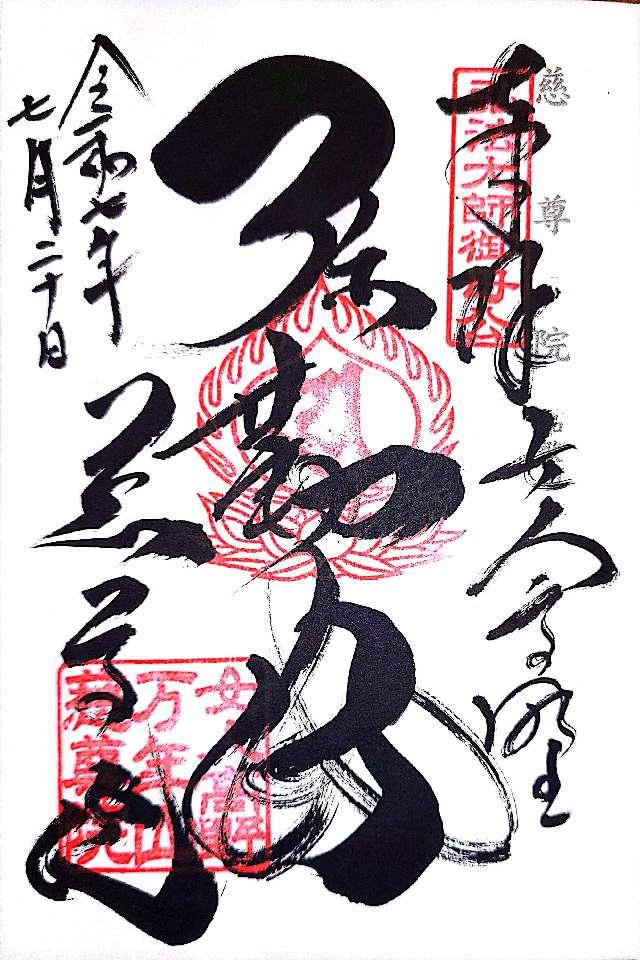 慈尊院
奉拝 女人高野
弘法大師御母公
弥勒佛
慈尊院
女人高野
万年山
慈尊院
令和七年
七月二十日